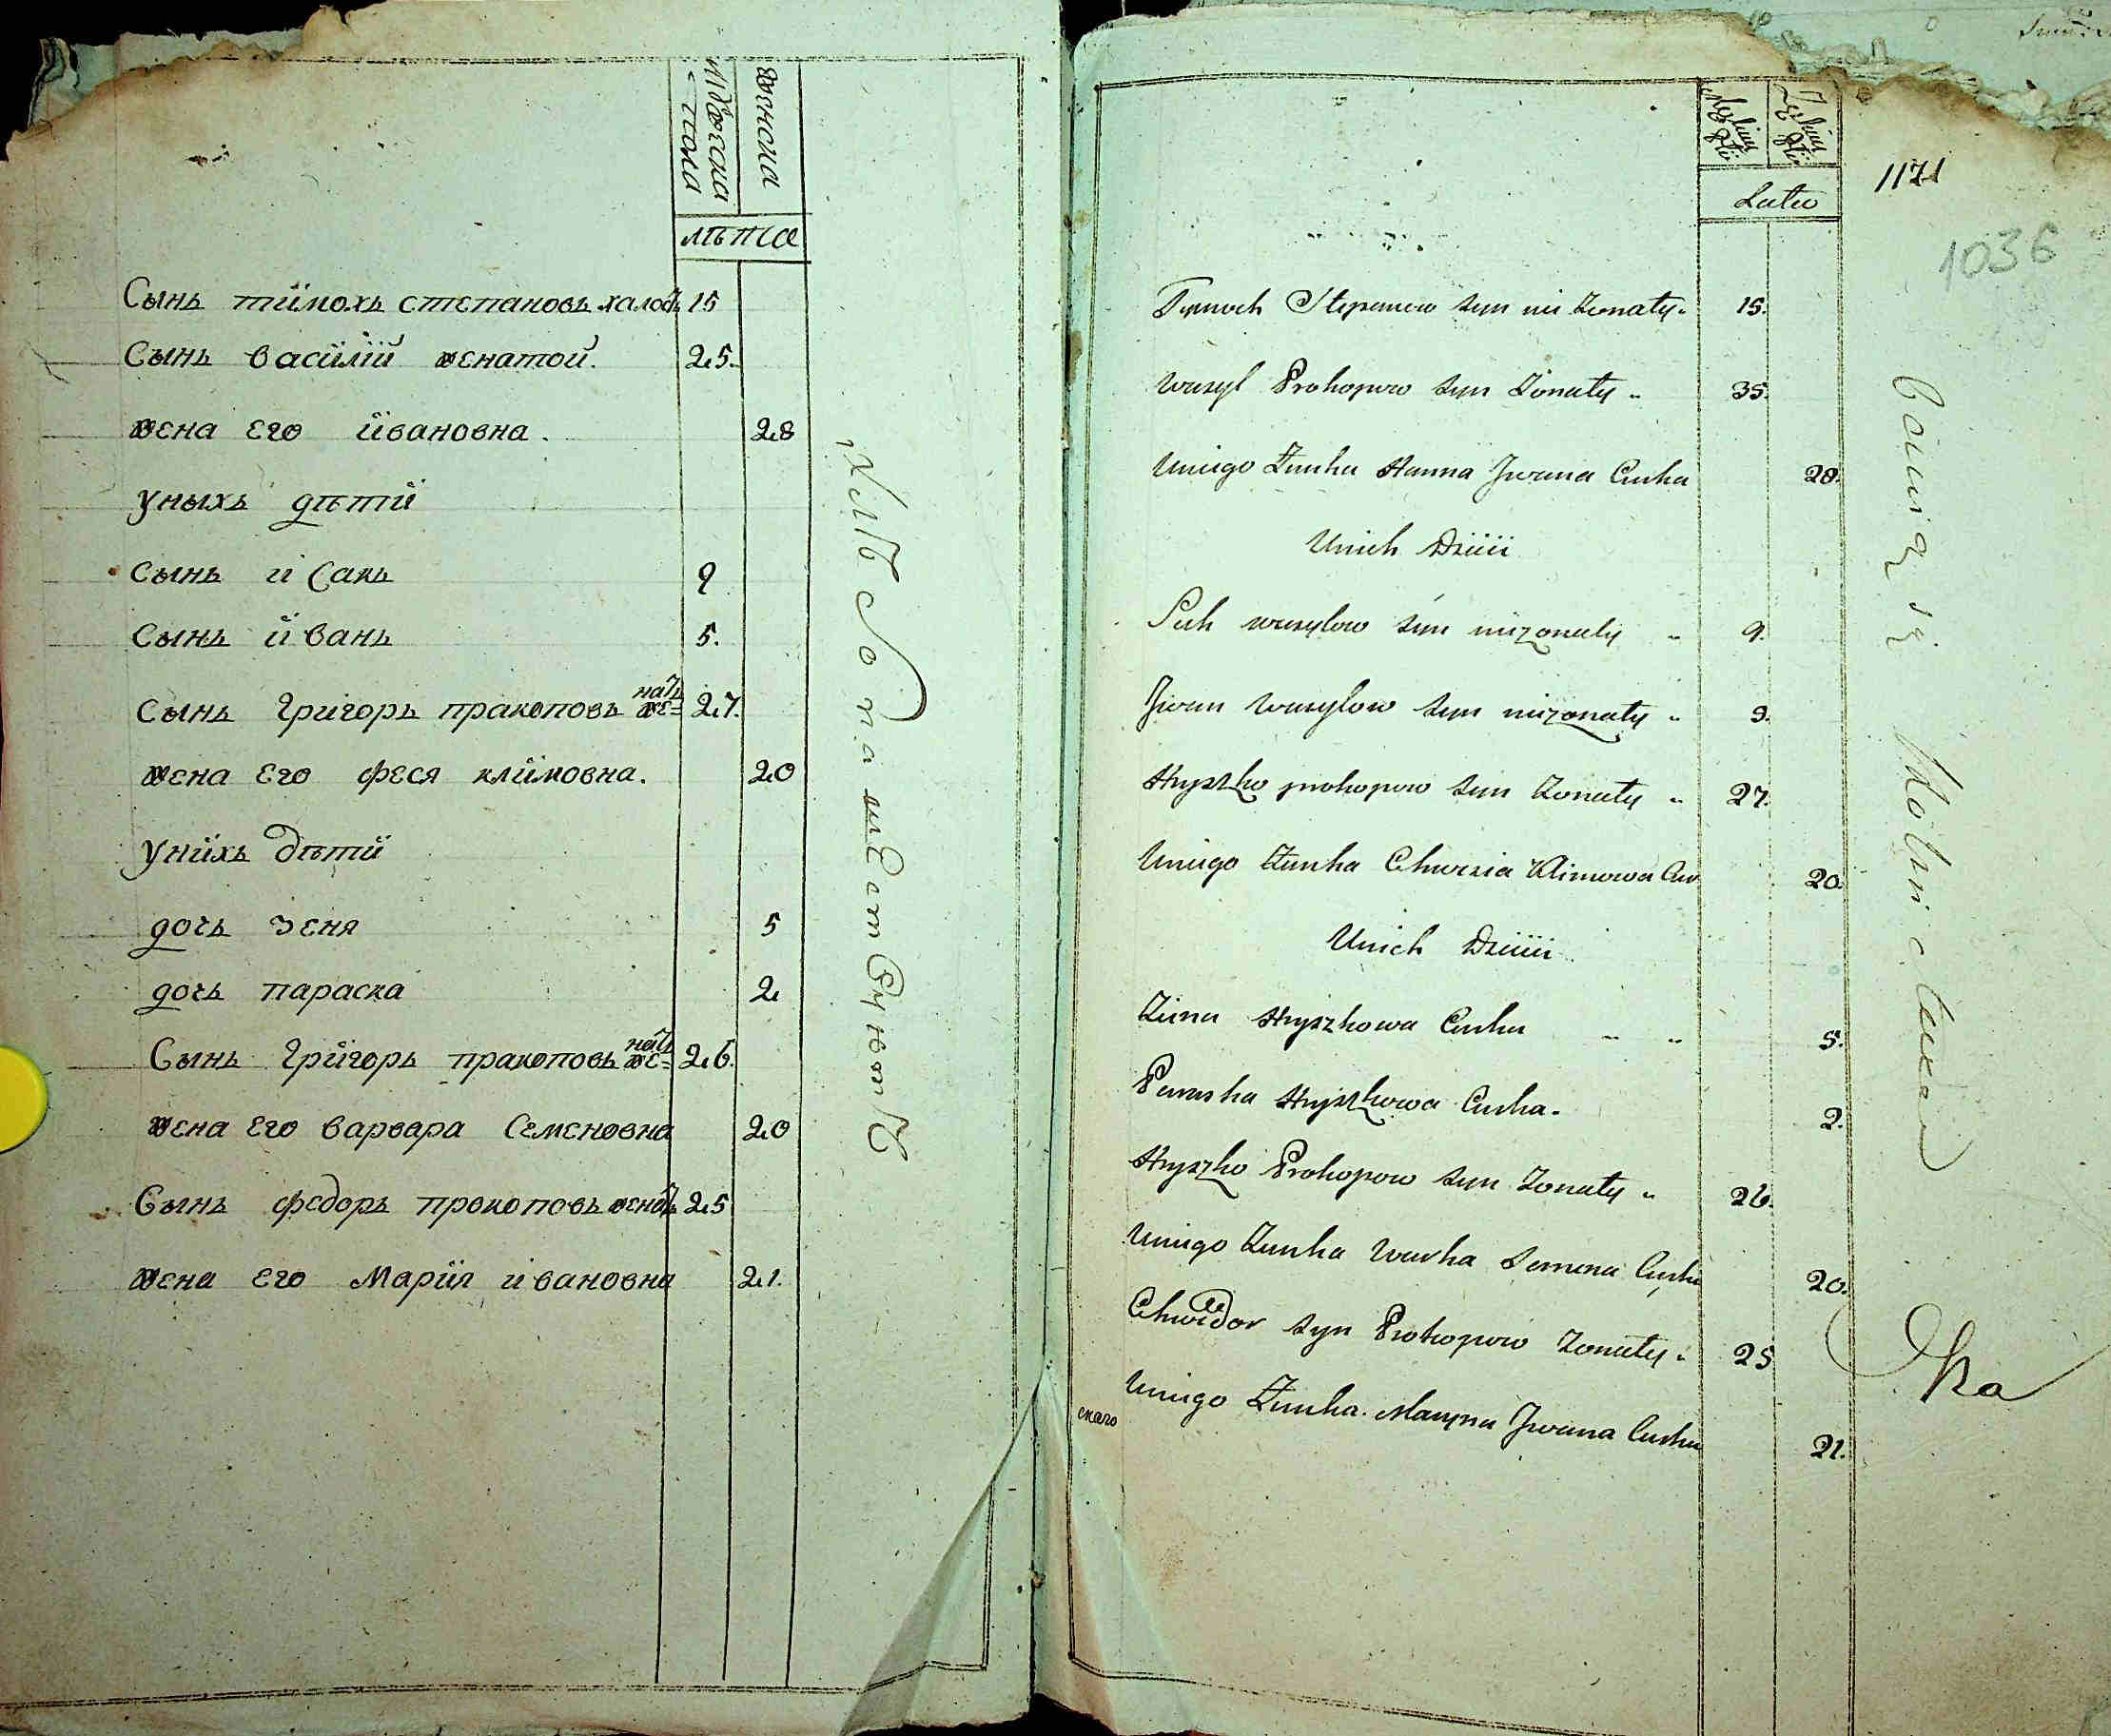 Мужеска пола
женска
лѣта
Сынъ тимохъ степановъ халост 15
Сынъ василий женатой. 25.
жена его ивановна. 28
уныхъ дѣти
Сынъ исакъ 9
Сынъ иванъ 5.
Сынъ григоръ пракоповъ женатъ 27.
жена его феся климовна. 20
унихъ дѣти
дочь зеня 5
дочь параска 2
Сынъ григоръ пракоповъ женатъ 26.
жена его варвара семеновна 20
Сынъ федоръ прокоповъ женат 25
жена его Мария ивановна 21.
Lata
1171
1036
Tymoch Stepanow syn nie żonaty 15.
Wasyl Prokopow syn żonaty 35.
Uniego Żonka Hanna Jwana Curka 28.
Unich Dzieci
Sak wasylow syn nieżonaty 9.
Jwan wasylow syn nieżonaty 9.
Hryszko prokopow syn żonaty 27.
Uniego Żonka Chwesia Klimowa Cur 20.
Unich Dzieci
Zina Hryszkowa Curka 5.
Paraska Hryszkowa Curka. 2.
Hryszko Prokopow syn żonaty 26.
Uniego Żonka Warka Semena Curka 20.
Chwedor syn Prokopow żonaty 25
Uniego Żonka Maryna Jwana Curka 21.
скаго